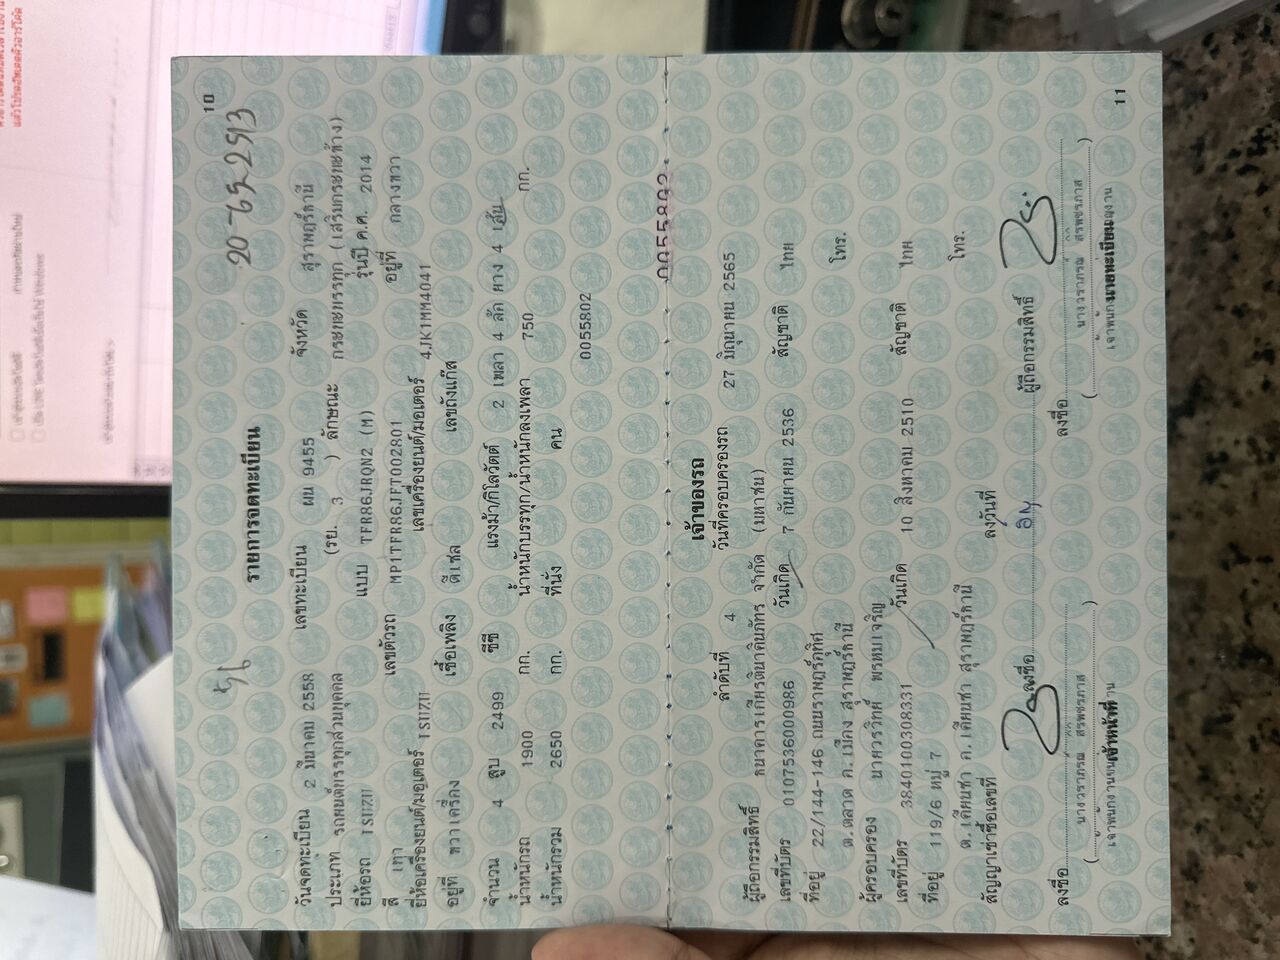 10
20-652513
รายการจดทะเบียน
วันจดทะเบียน 2 มีนาคม 2558 เลขทะเบียน ผน 9455 จังหวัด สุราษฎร์ธานี
ประเภท รถยนต์บรรทุกส่วนบุคคล (รย. 3 ) ลักษณะ กระบะบรรทุก (เสริมกระบะข้าง)
ยี่ห้อรถ ISUZU แบบ TFR86JRQN2 (M) รุ่นปี ค.ศ. 2014
สี เทา เลขตัวรถ MP1TFR86JFT002801 อยู่ที่ กลางขวา
ยี่ห้อเครื่องยนต์/มอเตอร์ ISUZU เลขเครื่องยนต์/มอเตอร์ 4JK1MM4041
อยู่ที่ ขวาเครื่อง เชื้อเพลิง ดีเซล เลขถังแก๊ส
จำนวน 4 สูบ 2499 ซีซี แรงม้า/กิโลวัตต์ 2 เพลา 4 ล้อ ยาง 4 เส้น
น้ำหนักรถ 1900 กก. น้ำหนักบรรทุก/น้ำหนักลงเพลา 750 กก.
น้ำหนักรวม 2650 กก. ที่นั่ง คน
0055802
0055802
เจ้าของรถ
ลำดับที่ 4 วันที่ครอบครองรถ 27 มิถุนายน 2565
ผู้ถือกรรมสิทธิ์ ธนาคารเกียรตินาคินภัทร จำกัด (มหาชน)
เลขที่บัตร 0107536000986 วันเกิด 7 กันยายน 2536 สัญชาติ ไทย
ที่อยู่ 22/144-146 ถนนราษฎร์อุทิศ โทร.
ต.ตลาด อ.เมือง สุราษฎร์ธานี
ผู้ครอบครอง นายวรวิทย์ พรหมเจริญ
เลขที่บัตร 3840100308331 วันเกิด 10 สิงหาคม 2510 สัญชาติ ไทย
ที่อยู่ 119/6 หมู่ 7 โทร.
ต.เคียนซา อ.เคียนซา สุราษฎร์ธานี
สัญญาเช่าซื้อเลขที่ ลงวันที่
ลงชื่อ ผู้ถือกรรมสิทธิ์
ลงชื่อ ลงชื่อ
( นางวราภรณ์ สรพชรภาส ) ( นางวราภรณ์ สรพชรภาส )
เจ้าหน้าที่ นายทะเบียน
11